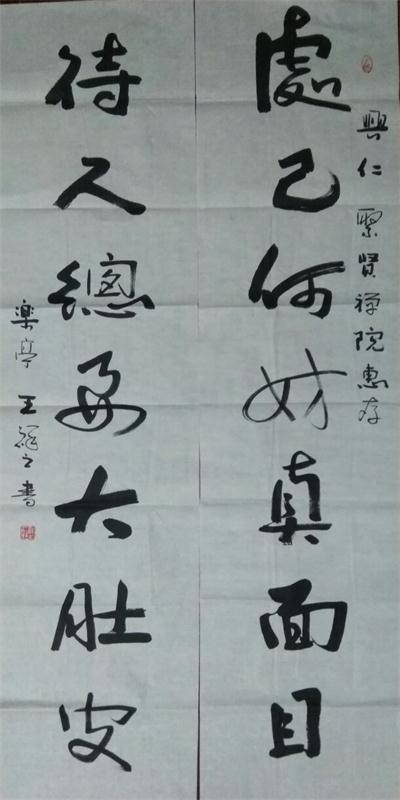 興仁聚贤禅院惠存
處己何妨真面目
待人總要大肚皮
楽亭王
书